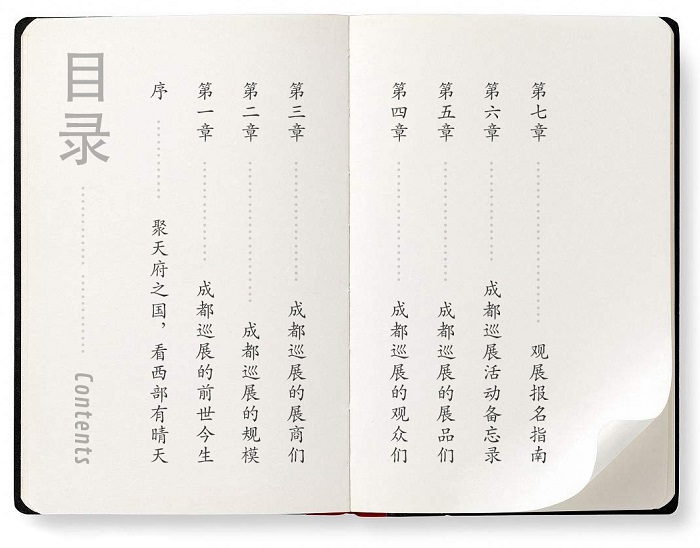 目录
Contents
序 聚天府之国，看西部有晴天
第一章 成都巡展的前世今生
第二章 成都巡展的规模
第三章 成都巡展的展商们
第四章 成都巡展的观众们
第五章 成都巡展的展品们
第六章 成都巡展活动备忘录
第七章 观展报名指南